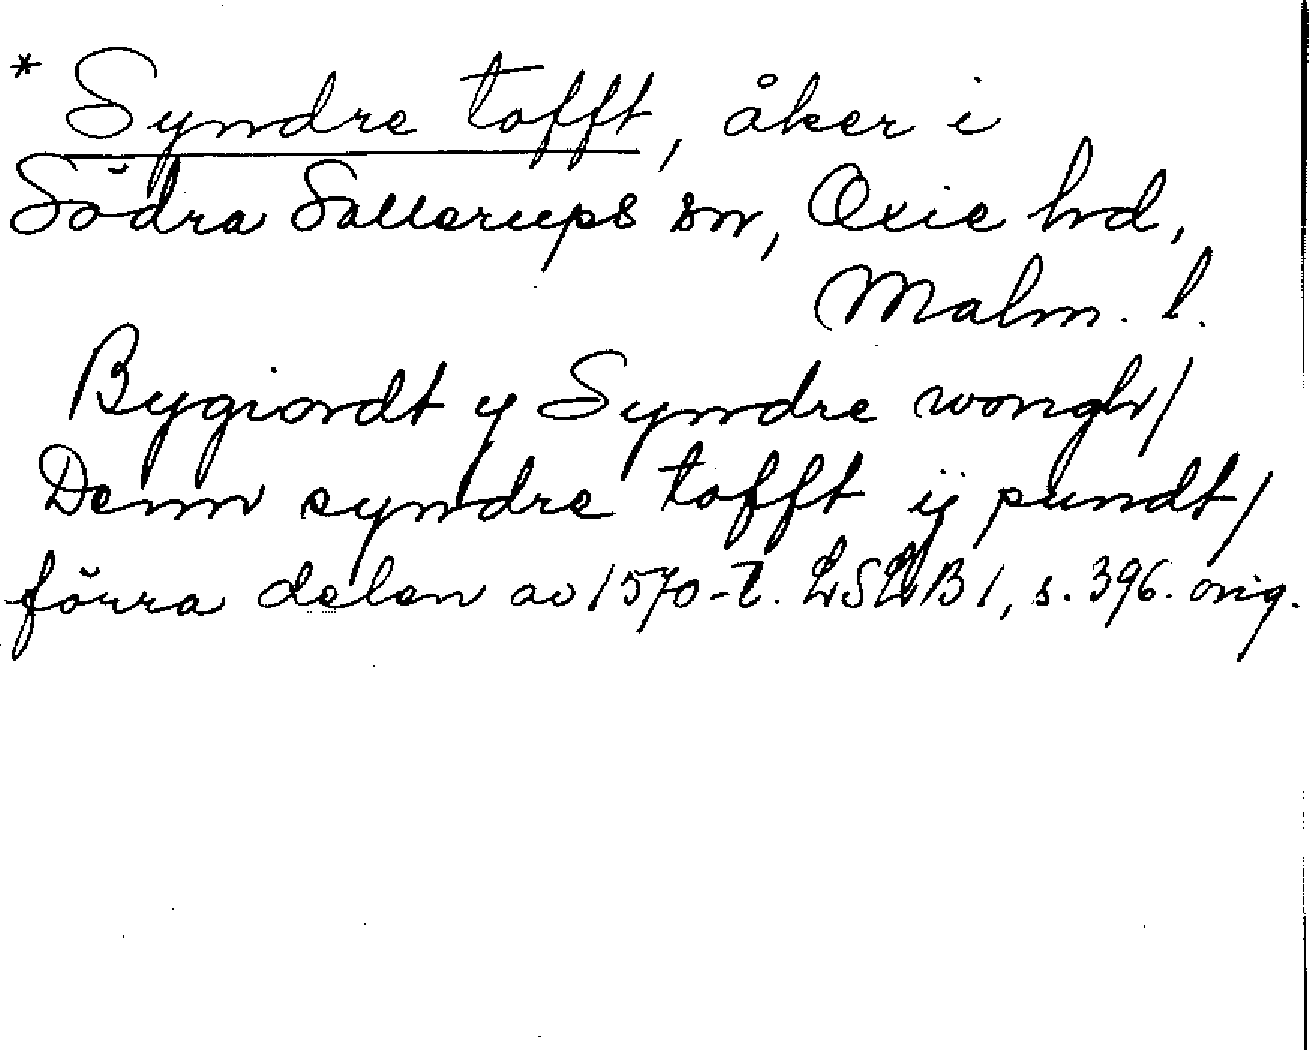 * Syndre tofft, åker i
Södra Sallerups sn, Oxie hd,
Malm. l.
Bygiordt y Syndre wongh/
Denn syndre tofft ij pundt/
förra delen av 1570-t. LSLB 1, s. 396. orig.